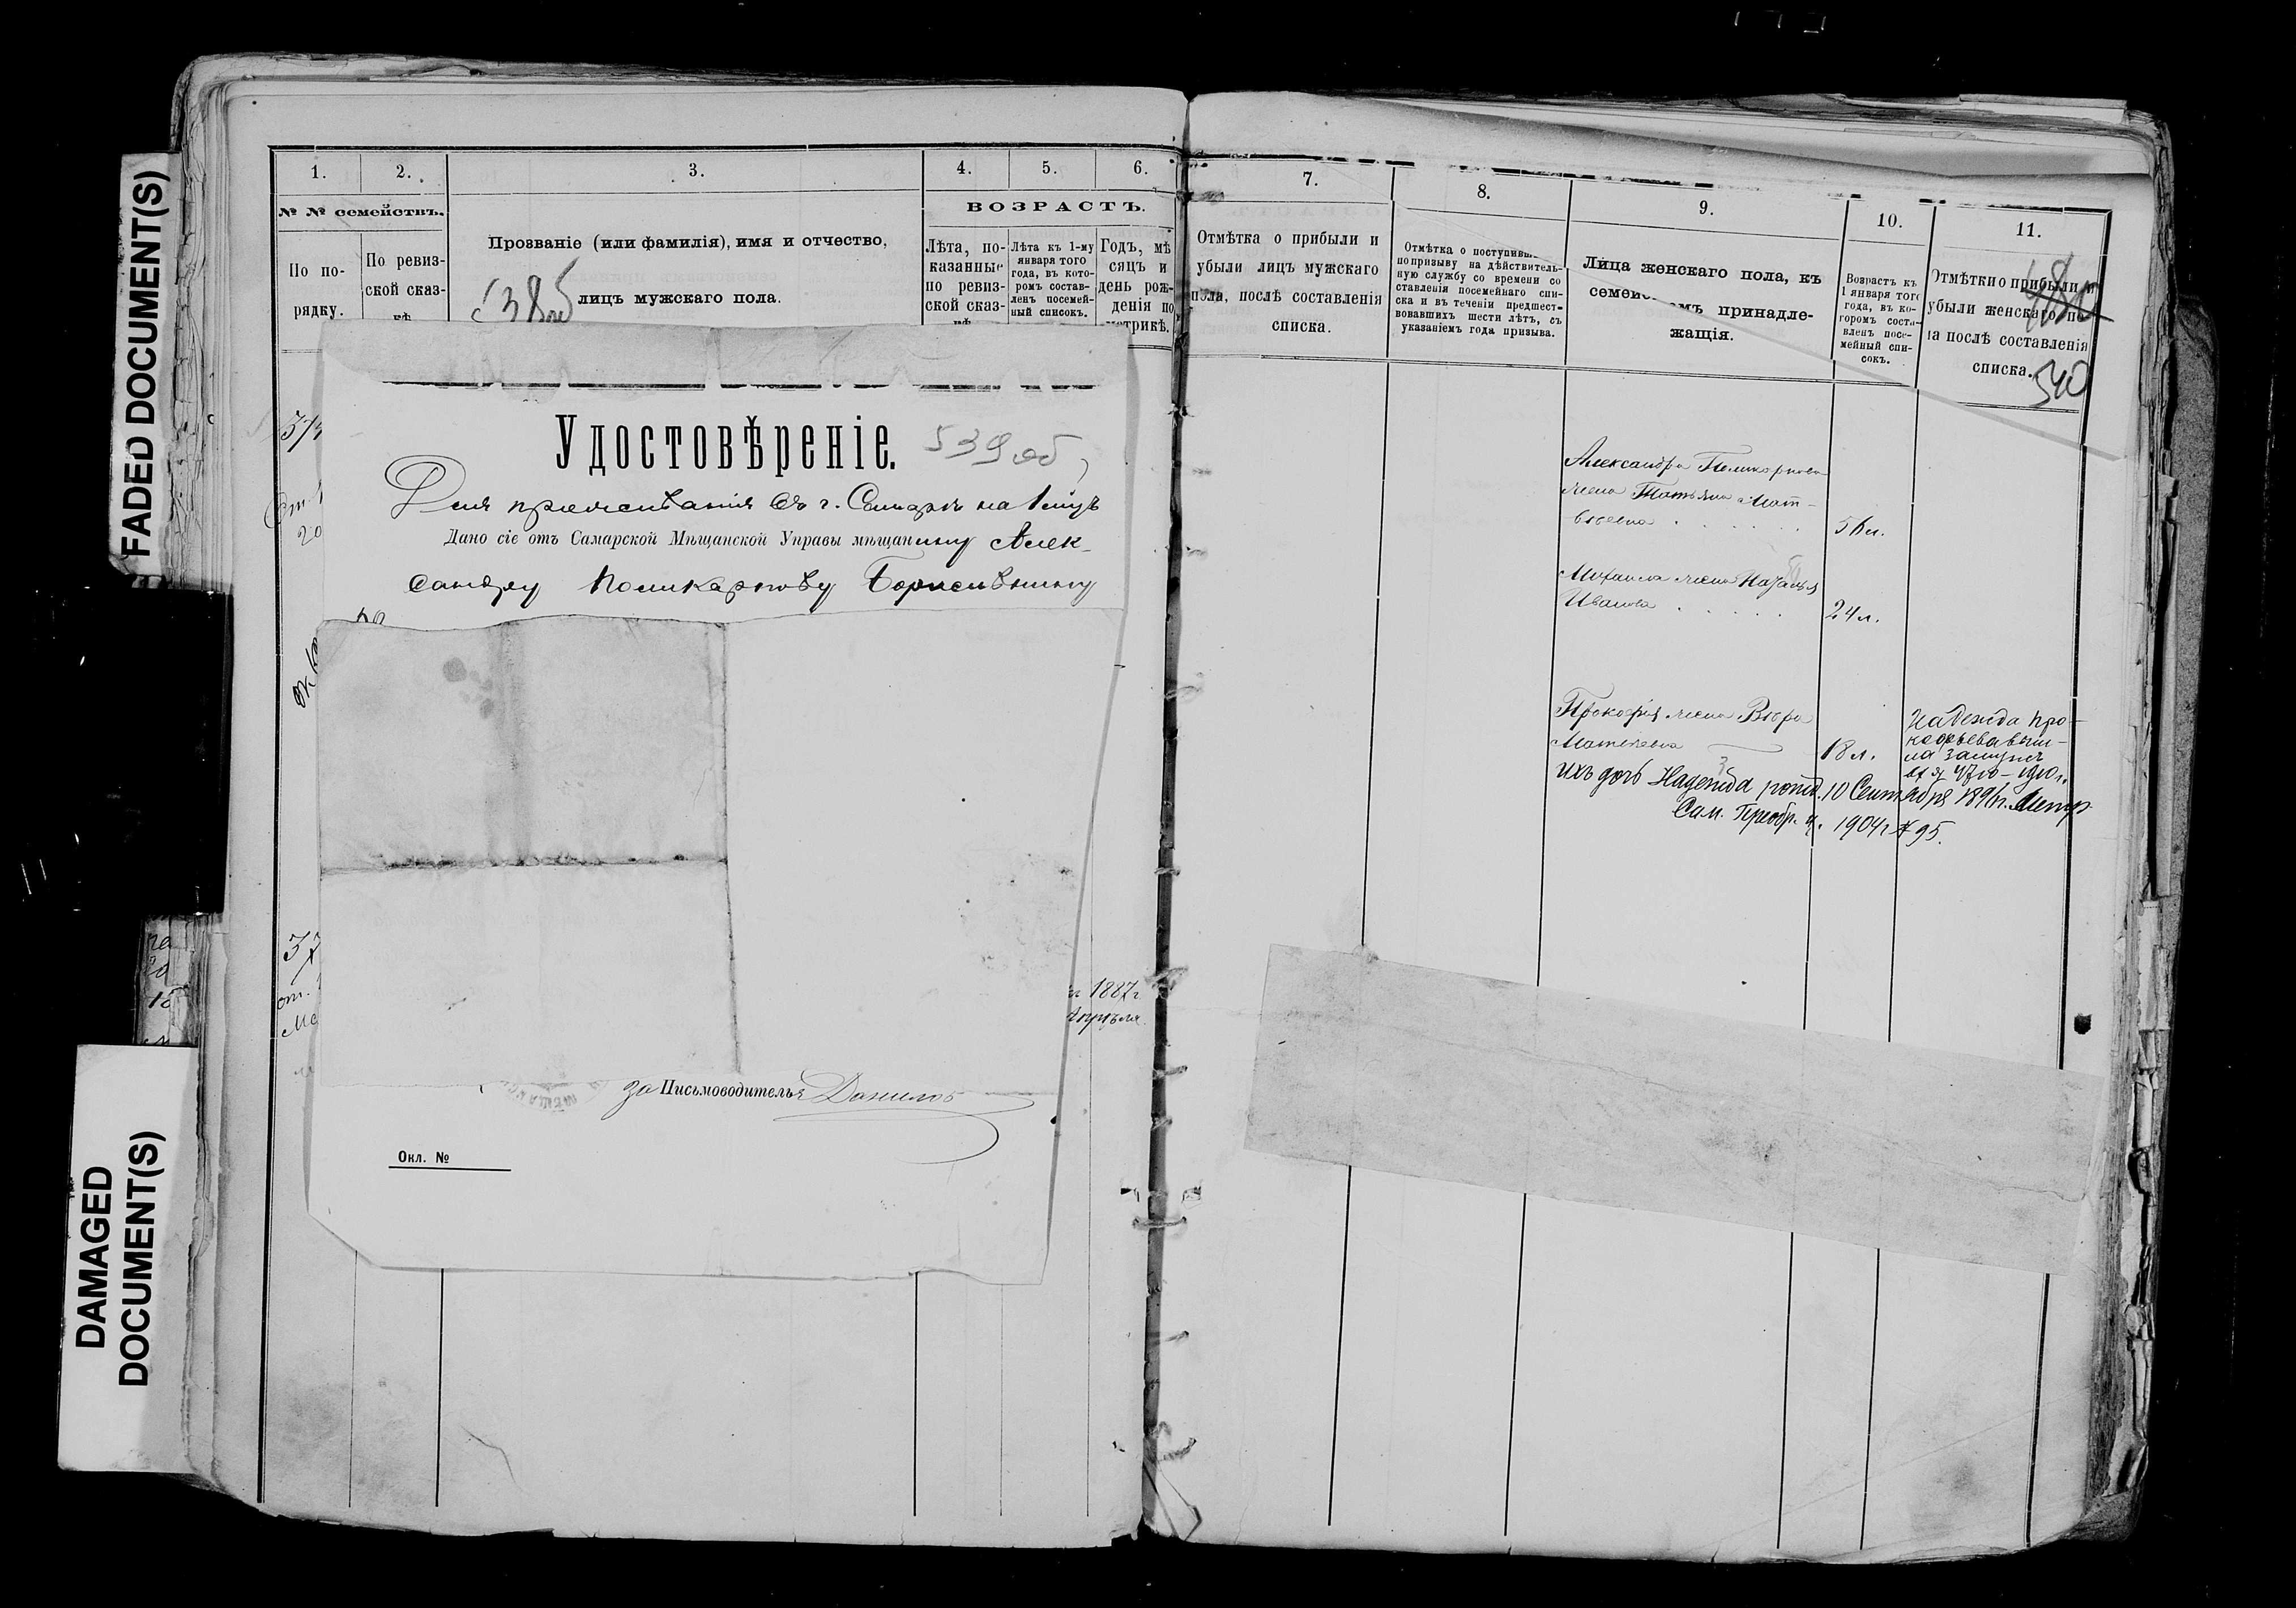 FADED DOCUMENT(S)
DAMAGED
DOCUMENT(S)
1.
2.
3.
4.
5.
6.
№ № семействъ.
ВОЗРАСТЪ.
По по-
рядку.
По ревиз-
ской сказ-
кѣ
Прозваніе (или фамилія), имя и отчество,
лицъ мужскаго пола.
538 об
Лѣта, по-
казанные
по ревиз-
ской сказ-
Лѣта къ 1-му
января того
года, въ кото-
ромъ состав-
ленъ посемей-
ный списокъ.
Годъ, мѣ
сяцъ и
день рож-
денія по
метрикѣ.
Удостовѣреніе.
539 об
Для проживанія въ г. Самарѣ на
Дано сіе отъ Самарской Мѣщанской Управы мѣщанину Алек-
сандру Поликарпову
20
37
от.
1887г
Апрѣля
за Письмоводителя Данилов
Окл. №
7.
8.
9.
10.
11.
Отмѣтка о прибыли и
убыли лицъ мужскаго
пола, послѣ составленія
списка.
Отмѣтка о поступивш
по призыву на дѣйствитель-
ную службу со времени со
ставленія посемейнаго спи-
ска и въ теченіи предшест-
вовавшихъ шести лѣтъ, съ
указаніемъ года призыва.
Лица женскаго пола, къ
семей мъ принадле-
жащія.
Возрастъ къ
1 января того
года, въ ко-
торомъ соста-
вленъ посе-
мейный спи-
сокъ.
Отмѣтки о прибыли и
убыли женскаго по
ла послѣ составленія
списка.
540
Александра Поликарпова
жена Татьяна Мат-
вѣевна
56 л.
Михаила жена Наталья
Иванова
24 л.
Прокофія жена Вѣра
Матвѣевна
18 л.
Надежда Про-
кофьева выш-
ла замужъ
1910г.
ихъ дочь Надежда рожд. 10 Сентября 189 г. Метр
Сам. Преобр. ц. 1904 г № 95.